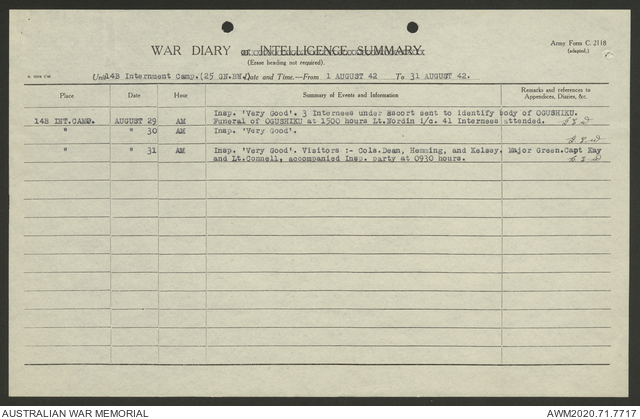 Army Form C. 2118
(adapted.)
WAR DIARY or INTELLIGENCE SUMMARY.
(Erase heading not required).
Unit 14B Internment Camp.(25 GN.BN.) Date and Time.—From 1 AUGUST 42 To 31 AUGUST 42.
Place Date Hour Summary of Events and Information Remarks and references to Appendices, Diaries, &c.
Insp. 'Very Good'. 3 Internees under escort sent to identify body of OGUSHIKU.
14B INT.CAMP. AUGUST 29 AM Funeral of OGUSHIKU at 1500 hours Lt.Nordin i/c. 41 Internees attended.
" " 30 AM Insp. 'Very Good'.
" " 31 AM Insp. 'Very Good'. Visitors :- Cols.Dean, Hemming, and Kelsey. Major Green.Capt Kay
and Lt.Connell, accompanied Insp. party at 0930 hours.
AUSTRALIAN WAR MEMORIAL AWM2020.71.7717